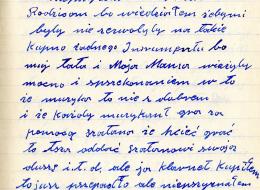 Rodzicom bo wiedziałem żebymi
były nie zezwoliły na takie
kupno żadnego Instrumentu bo
mój tata i Moja Mama wierzyli
mocno i s przekonaniem w to
że muzyka to nie z dobrem
i że każdy muzykant gra za
pomocą szatana że chcieć grać
to tsza oddać szatanowi swoja
dusze i.t.d, ale ja klarnet kupiłem
to jusz przepadło ale nie